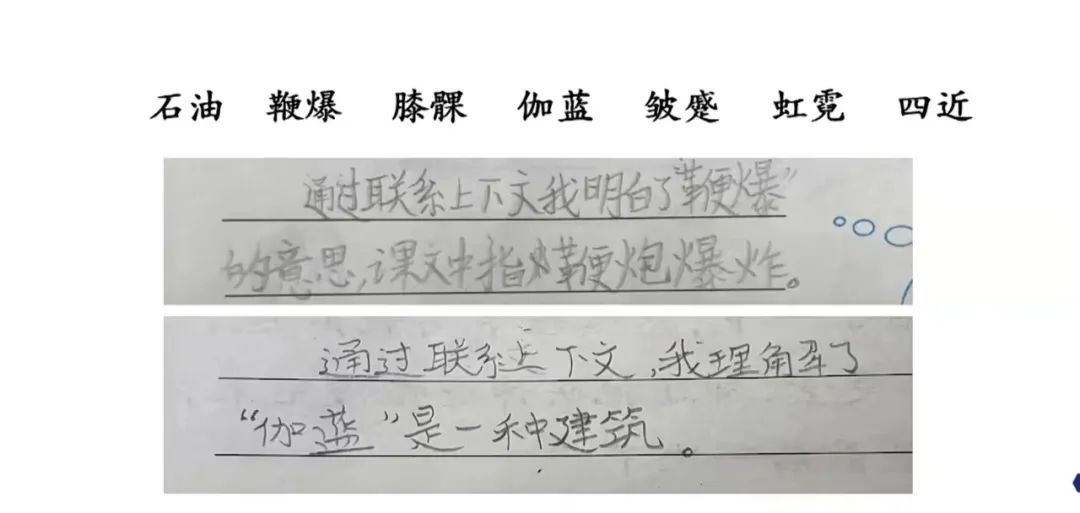 石油 鞭爆 膝髁 伽蓝 皱蹙 虹霓 四近
通过联系上下文我明白了“鞭爆”
的意思,课文中指鞭炮爆炸。
通过联系上下文,我理解了
“伽蓝”是一种建筑。